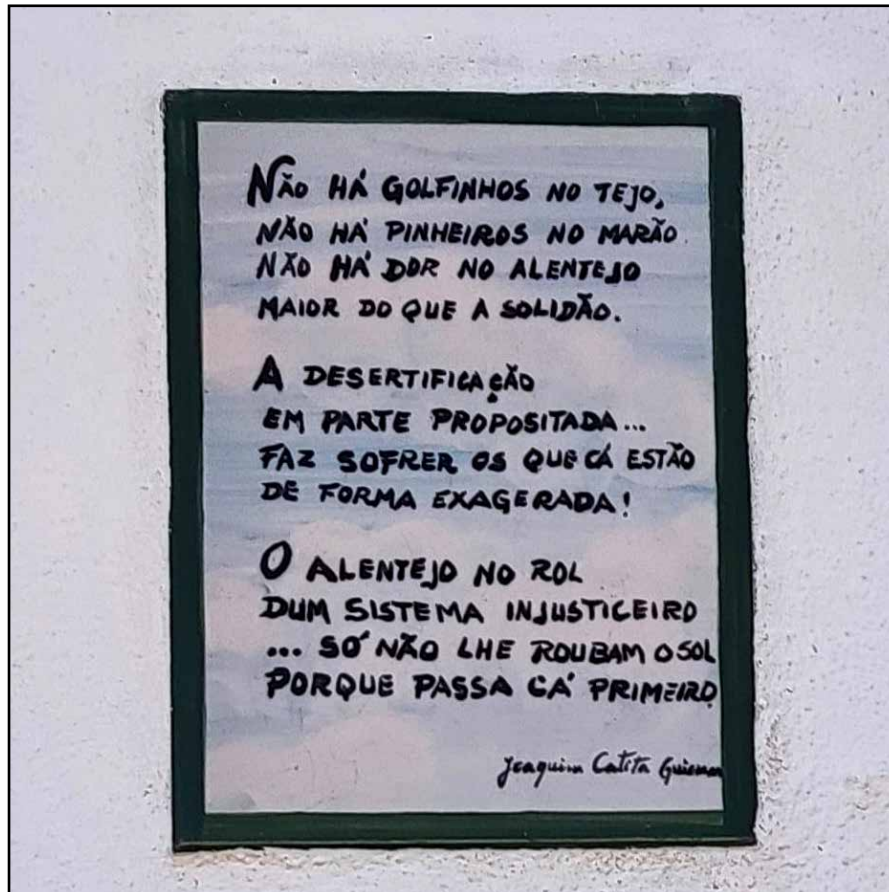 NÃO HÁ GOLFINHOS NO TEJO,
NÃO HÁ PINHEIROS NO MARÃO
NÃO HÁ DOR NO ALENTEJO
MAIOR DO QUE A SOLIDÃO.
A DESERTIFICAÇÃO
EM PARTE PROPOSITADA...
FAZ SOFRER OS QUE CÁ ESTÃO
DE FORMA EXAGERADA!
O ALENTEJO NO ROL
DUM SISTEMA INJUSTICEIRO
... SÓ NÃO LHE ROUBAM O SOL
PORQUE PASSA CÁ PRIMEIRO
Joaquim Catita